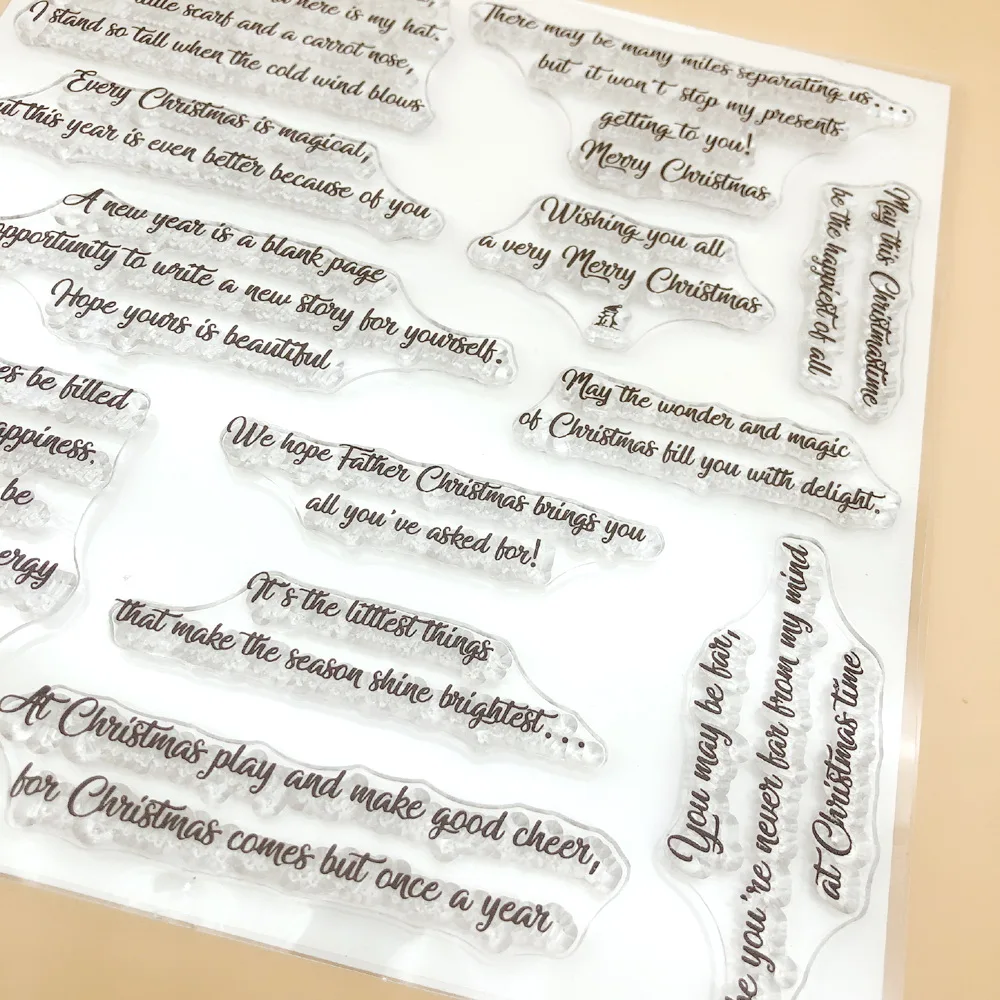 here is my hat.
little scarf and a carrot nose,
I stand so tall when the cold wind blows
Every Christmas is magical,
but this year is even better because of you
A new year is a blank page
opportunity to write a new story for yourself.
Hope yours is beautiful
be filled
be
There may be many miles separating us...
but it won't stop my presents
getting to you!
Merry Christmas
Wishing you all
a very Merry Christmas
May this Christmastime
be the happiest of all
May the wonder and magic
of Christmas fill you with delight.
We hope Father Christmas brings you
all you've asked for!
It's the litttest things
that make the season shine brightest...
At Christmas play and make good cheer,
for Christmas comes but once a year
You may be far,
you're never far from my mind
at Christmas time